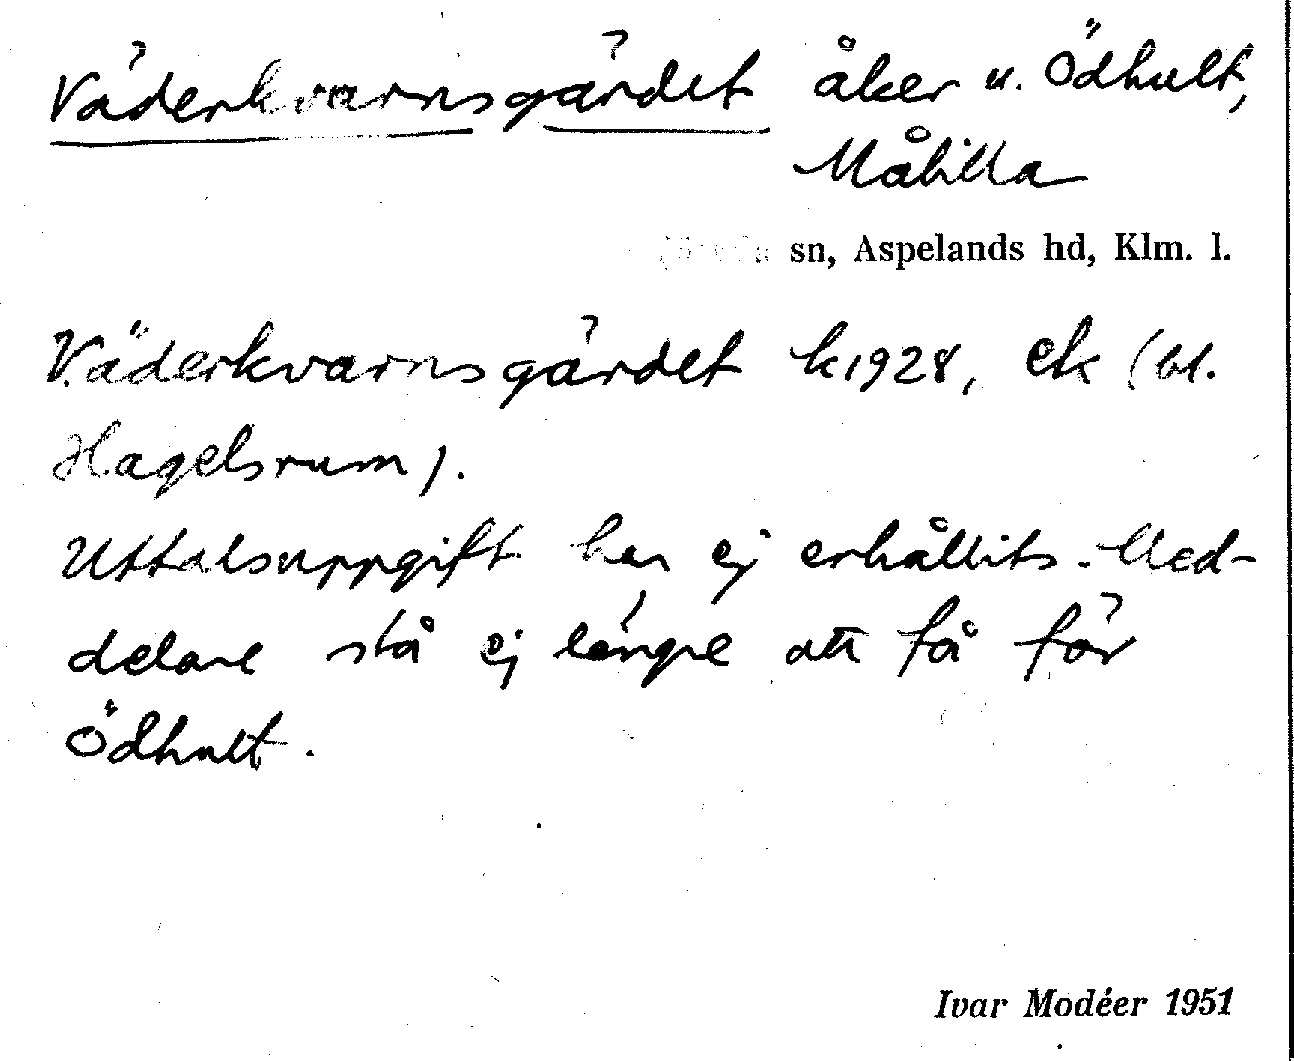 Väderkvarnsgärdet åker u. Ödhult,
Målilla
sn, Aspelands hd, Klm. l.
Väderkvarnsgärdet k1928, ek (bl.
Hagelsrum).
Uttalsuppgift har ej erhållits. Med-
delare stå ej längre att få för
Ödhult.
Ivar Modéer 1951